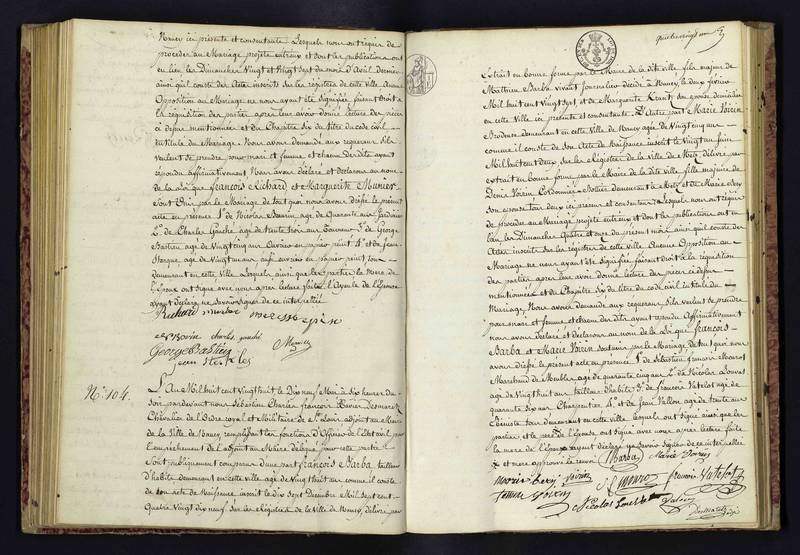 Nancy ici présente et consentante Lesquels nous ont requis de
procéder au Mariage projeté entr'eux et dont les publications ont
eu lieu les Dimanches Vingt et Vingt sept du mois d'Avril dernier
ainsi qu'il conste des Actes inscrits sur les registres de cette ville Aucune
Opposition au Mariage ne nous ayant été signifiée faisant droit à
la réquisition des parties après leur avoir donné lecture des pièces
ci dessus mentionnées et du Chapitre six du titre du code civil
intitulé du Mariage Nous avons demandé aux requérans s'ils
veulent se prendre pour mari et femme et chacun d'eux ayant
répondu affirmativement Nous avons déclaré et déclarons au nom
de la loi que françois Richard et Marguerite Munier
Sont Unis par le Mariage de tout quoi nous avons dressé le présent
acte en présence 1º de Nicolas age de Quarante ans Jardinier
2º de Charles Gauché, age de trente trois ans 3º de George
Bastien age de Vingt cinq ans Ouvrier en papier peint 4º et de Jean
age de Vingt un ans aussi ouvrier en papier peint tous
demeurant en cette ville Lesquels ainsi que les parties la Mere de
l'Epoux ont signé avec nous après lecture faite L'Ayeule de l'Epouse
ayant déclaré ne savoir signer de ce interpellée
Richard munier
charles gauché
George Bastien
Nº 104.
L'An Mil huit cent Vingt huit le Dix neuf Mai à Six heures du
soir pardevant nous Sébastien Charles françois Xavier Desmarets
Chevalier de l'Ordre royal et Militaire de St. Louis adjoint au Maire
de la Ville de Nancy remplissant les fonctions d'Officier de l'Etat civil par
l'empêchement de l'adjoint au Maire délégué pour cette partie
Sont publiquement comparus d'une part françois Barba tailleur
d'habits demeurant en cette ville age de Vingt huit ans comme il conste
de son acte de Naissance inscrit le Dix Sept Décembre Mil Sept cent
Quatre Vingt dix neuf sur les Registres de la Ville de Nancy, délivré par
quatre vingt un
Extrait en bonne forme par le Maire de la dite ville fils majeur de
Mathieu Barba vivant Journalier décédé à Nancy le deux février
Mil huit cent Vingt sept et de Marguerite son épouse domiciliée
en cette Ville ici présente et consentante D'Autre part Marie Voirin
Brodeuse demeurant en cette Ville de Nancy age de Vingt cinq ans
comme il conste de son Acte de Naissance inscrit le Vingt un Juin
Mil huit cent deux sur les Registres de la Ville de Metz, délivré par
extrait en bonne forme par le Maire de la dite ville fille majeure de
Denis Voirin Cordonnier Bottier demeurant à Metz et de Marie
son epouse tous deux ici présens et consentans Lesquels nous ont requis
de procéder au Mariage projeté entr'eux et dont les publications ont eu
lieu les Dimanches Quatre et onze du présent mois ainsi qu'il conste des
Actes inscrits sur les registres de cette ville Aucune Opposition au
Mariage ne nous ayant été signifiée faisant droit à la réquisition
des parties après leur avoir donné lecture des pièces ci dessus
mentionnées et du Chapitre six du titre du code civil intitulé du
Mariage, Nous avons demandé aux requérans s'ils veulent se prendre
pour mari et femme et chacun d'eux ayant répondu Affirmativement
nous avons déclaré et déclarons au nom de la Loi que françois
Barba et Marie Voirin sont unis par le Mariage de tout quoi nous
avons dressé le présent acte en présence 1º de Sébastien françois
Marchand de Meubles age de quarante cinq ans 2º de Nicolas
age de Vingt huit ans tailleur d'habits 3º de françois Vatelot age de
quarante six ans Charpentier 4º et de Jean age de
Ebéniste tous demeurant en cette ville lesquels ont signé ainsi que les
parties et le père de l'Epouse ont signé avec nous après lecture faite
la mere de l'Epoux ayant déclaré ne savoir signer de ce interpellée
et mere approuvé le renvoi Barba Marie Voirin
françois Vatelot
Nicolas
Desmarets